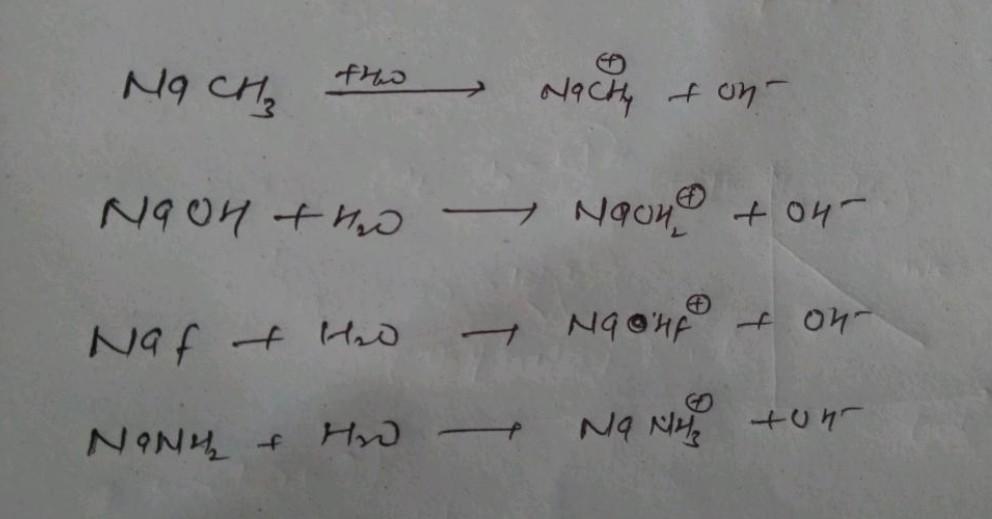 NaCH₃ +H₂O ⟶ NaCH₄⊕ + OH⁻
NaOH + H₂O ⟶ NaOH₂⊕ + OH⁻
Naf + H₂O → NaHf⊕ + OH⁻
NaNH₂ + H₂O ⟶ NaNH₃⊕ + OH⁻